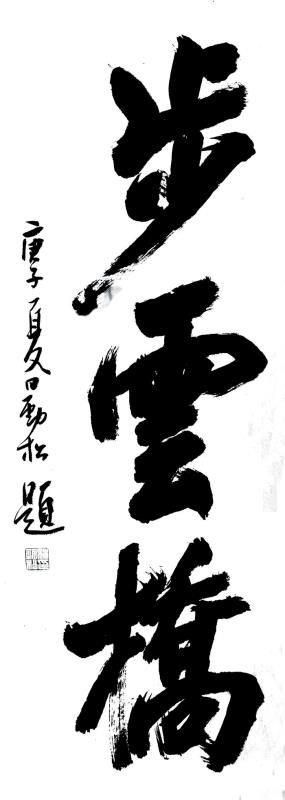 步雲橋
庚子夏日勁松題